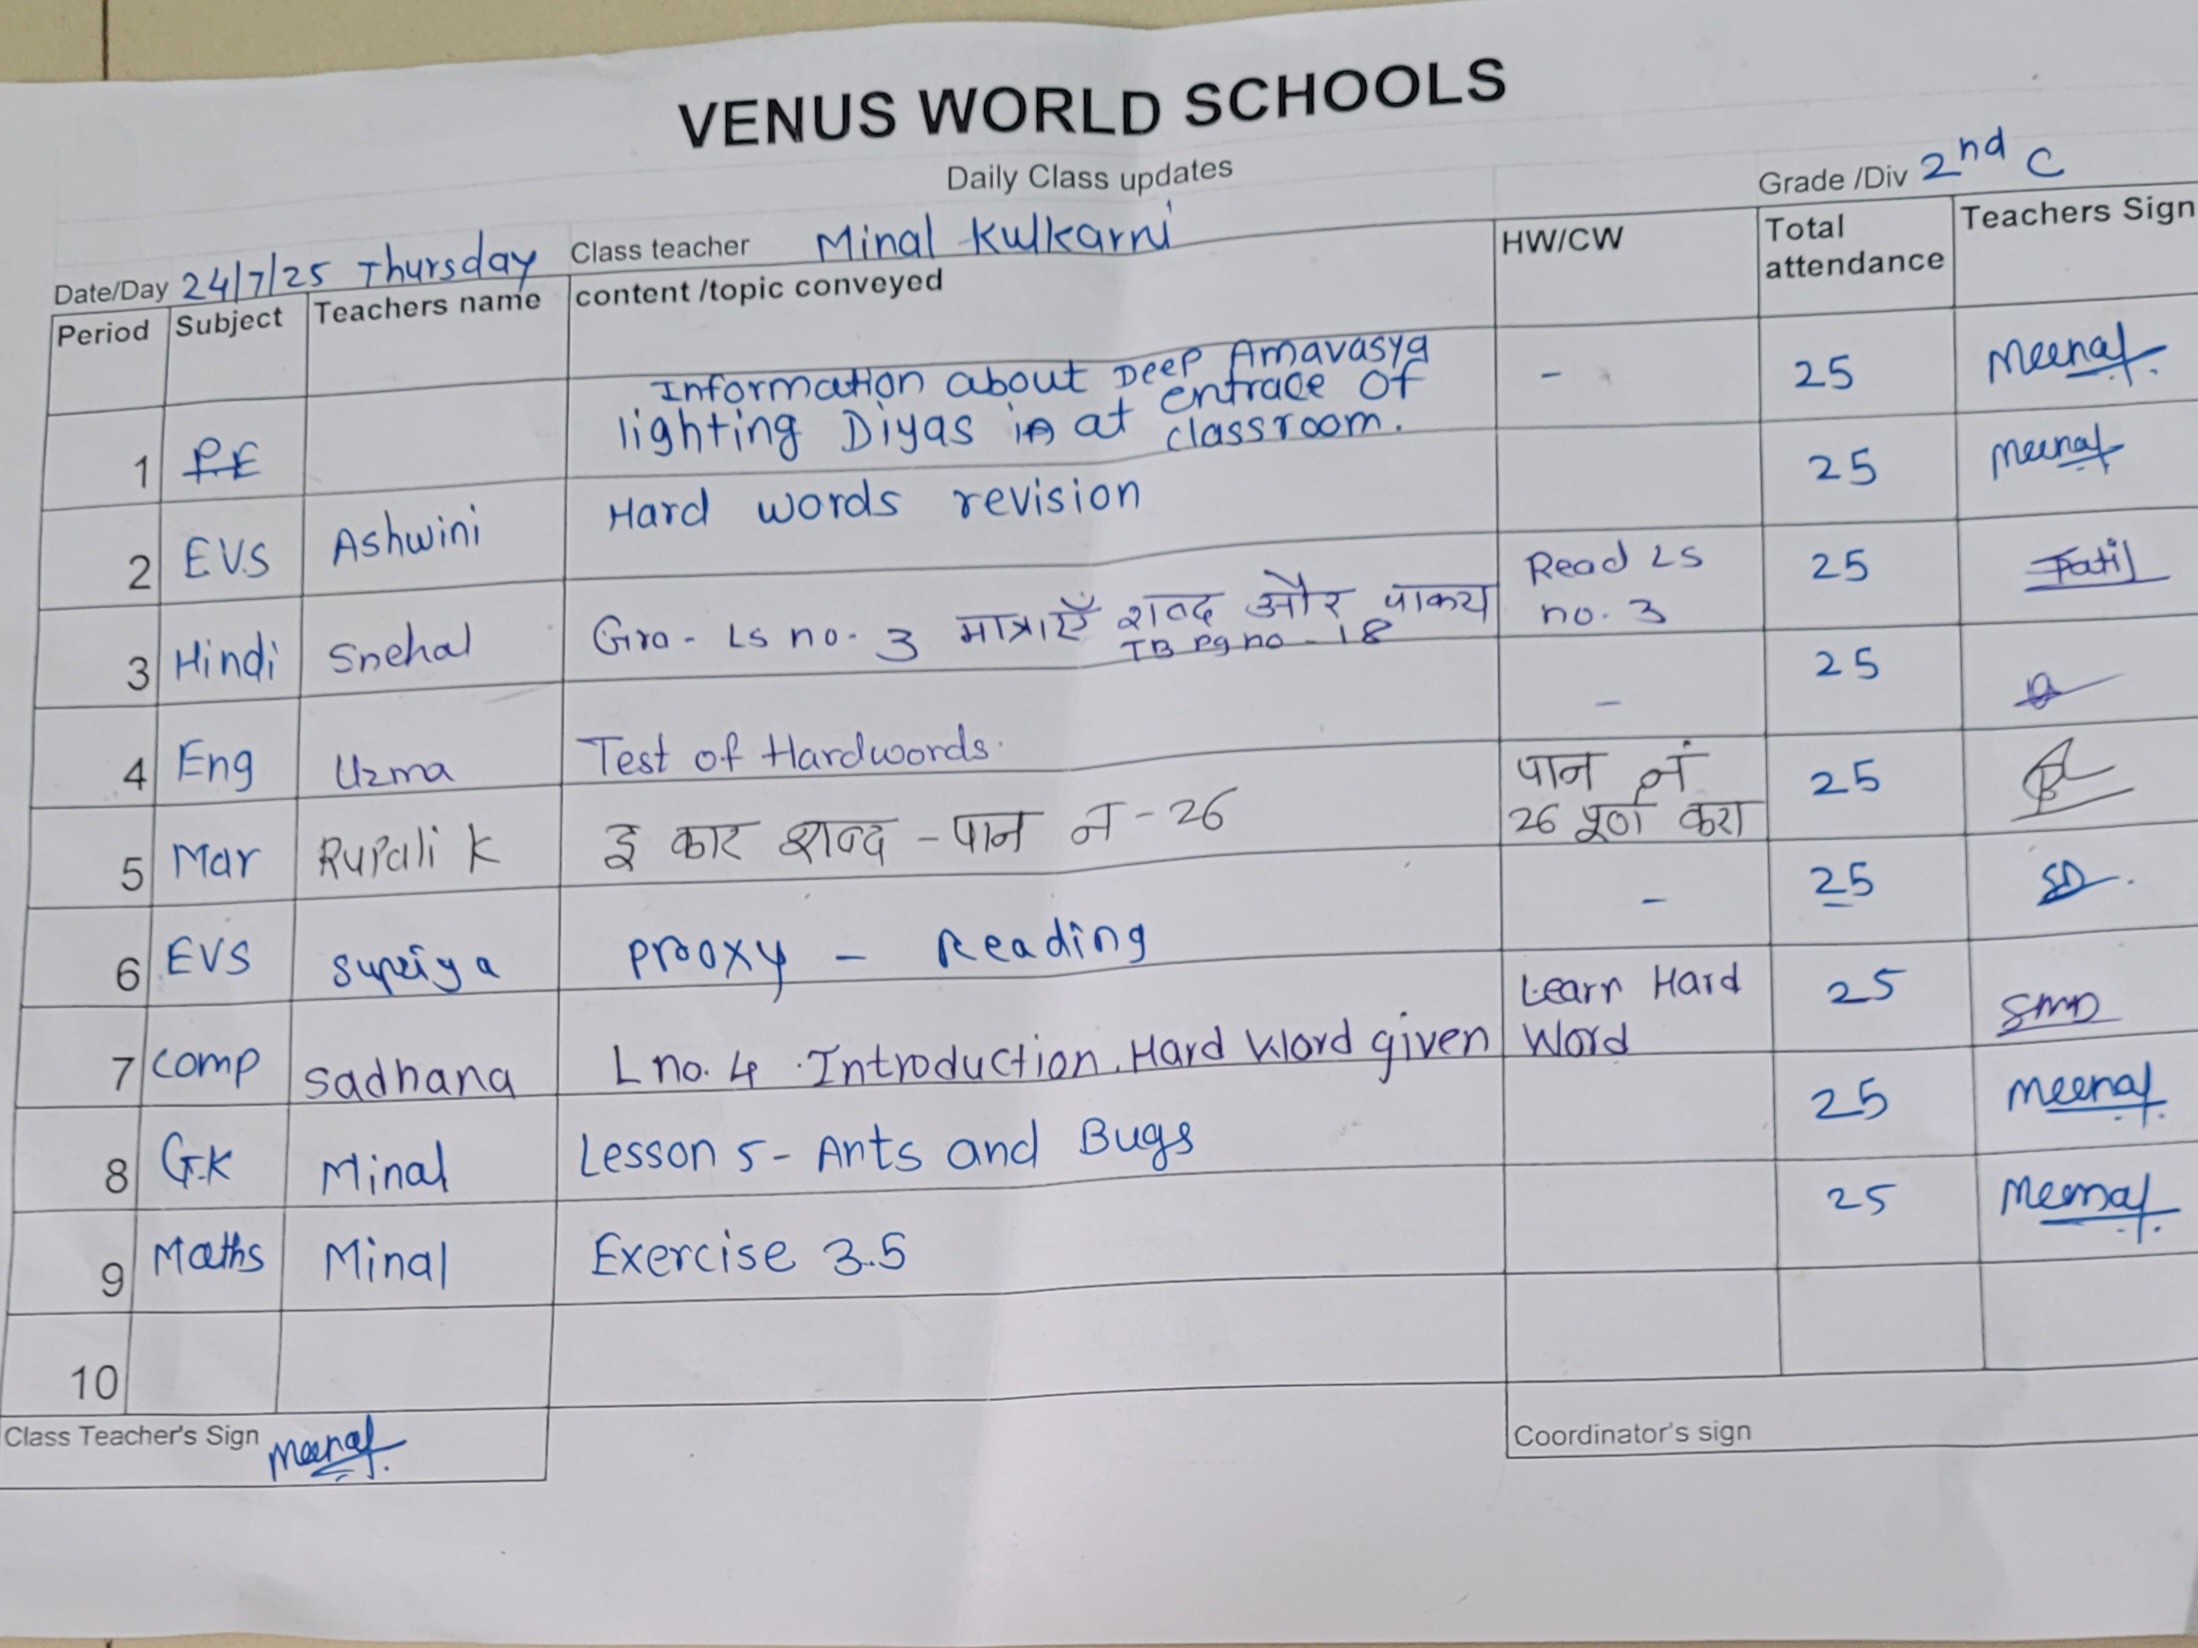 VENUS WORLD SCHOOLS
Daily Class updates
Grade /Div 2nd C
Date/Day 24/7/25 Thursday Class teacher Minal Kulkarni
Period Subject Teachers name content /topic conveyed HW/CW Total attendance Teachers Sign
Information about Deep Amavasya
lighting Diyas at entrace of classroom. - 25 Meenal
1 PE
2 EVS Ashwini Hard words revision 25 Meenal
3 Hindi Snehal Gra- Ls no. 3 मात्राएँ शब्द और वाक्य Read Ls 25 Patil
TB pg no - 18 no. 3
4 Eng Uzma Test of Hardwords. - 25
5 Mar Rupali K इ कार शब्द - पान नं - 26 पान नं 25
26 पूर्ण करा
6 EVS Supriya Prooxy - Reading - 25 SD.
7 Comp Sadhana L no. 4 . Introduction. Hard Word given Learn Hard 25 SMD
Word
8 G.K Minal Lesson 5 - Ants and Bugs 25 Meenal
9 Maths Minal Exercise 3.5 25 Meenal
10
Class Teacher's Sign Meenal
Coordinator's sign